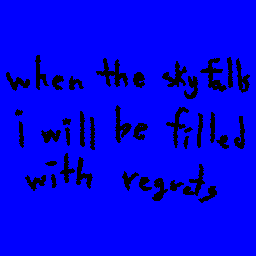 when the sky falls
i will be filled
with regrets